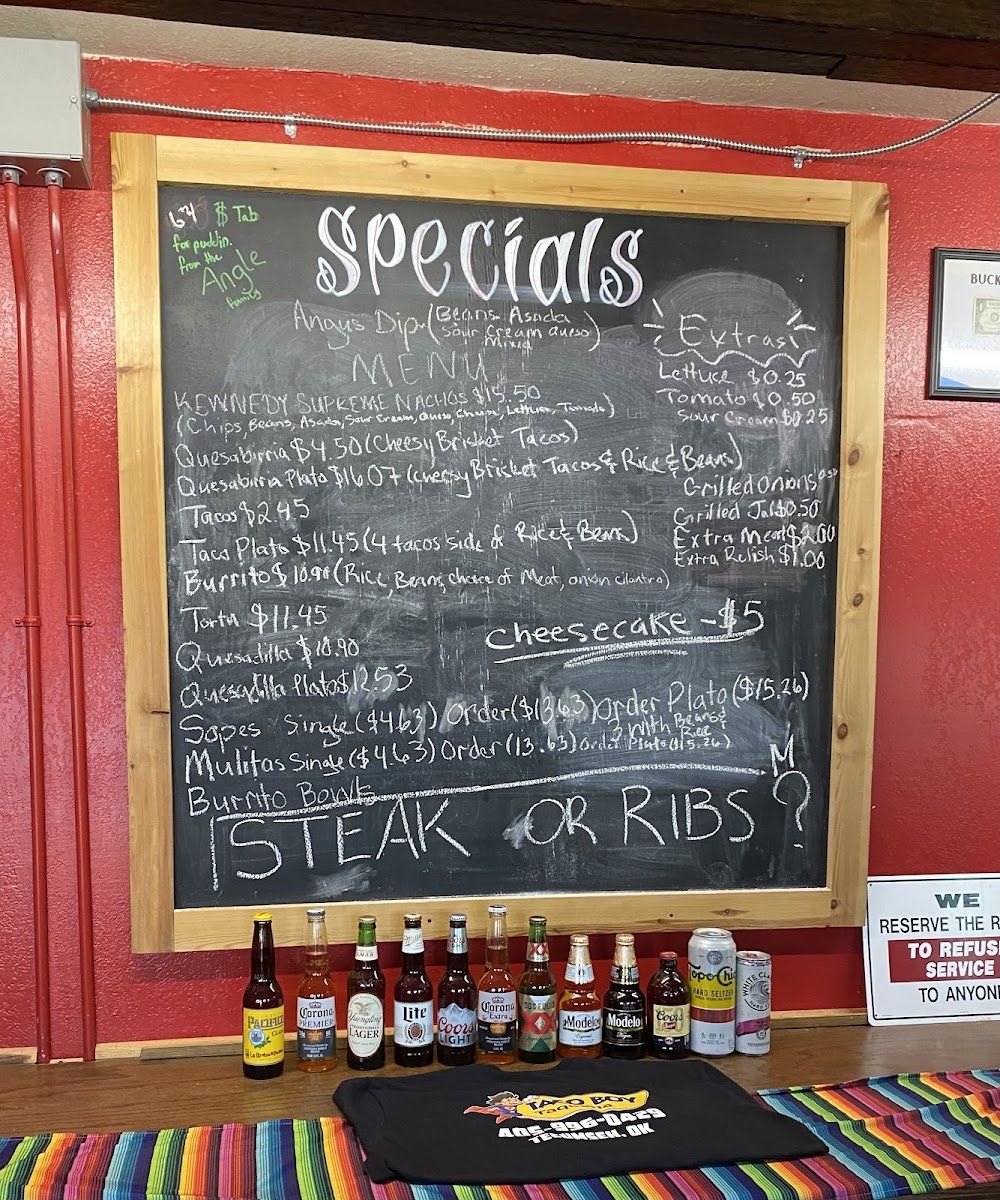 $ Tab
for puddin.
from the
Angle
family
Specials
Angus Dip (Beans Asada
Sour Cream Queso)
Mixed
MENU
KENNEDY SUPREME NACHOS $15.50
(Chips, Beans, Asada, Sour Cream, Queso, Lettuce, Tomato)
Quesabirria $4.50 (Cheesy Brisket Tacos)
Quesabirria Plato $16.07 (Cheesy Brisket Tacos & Rice & Beans)
Tacos $2.45
Taco Plato $11.45 (4 tacos side of Rice & Bean)
Burrito $10.90 (Rice, Beans, choice of Meat, onion cilantro)
Torta $11.45
Quesadilla $10.90
Quesadilla Plato $12.53
Sopes Single ($4.63) Order ($13.63) Order Plato ($15.26)
With Beans &
Rice
Mulitas Single ($4.63) Order (13.63) Order Plato ($15.26)
Burrito Bowls
Extras!
Lettuce $0.25
Tomato $0.50
Sour Cream $0.25
Grilled Onions
Grilled Jal $0.50
Extra Meat $2.00
Extra Relish $1.00
cheesecake - $5
M
STEAK OR RIBS ?
BUCK
WE
RESERVE THE R
TO REFUS
SERVICE
TO ANYON
PACIFICO
CORONA
PREMIER
Yuengling
TRADITIONAL
LAGER
Lite
Coors
LIGHT
Corona
Extra
DOS EQUIS
XX
Modelo
Modelo
Coors
Topo Chico
HARD SELTZER
WHITE CLAW
TACO BOY
405-996-0429
TECUMSEH, OK